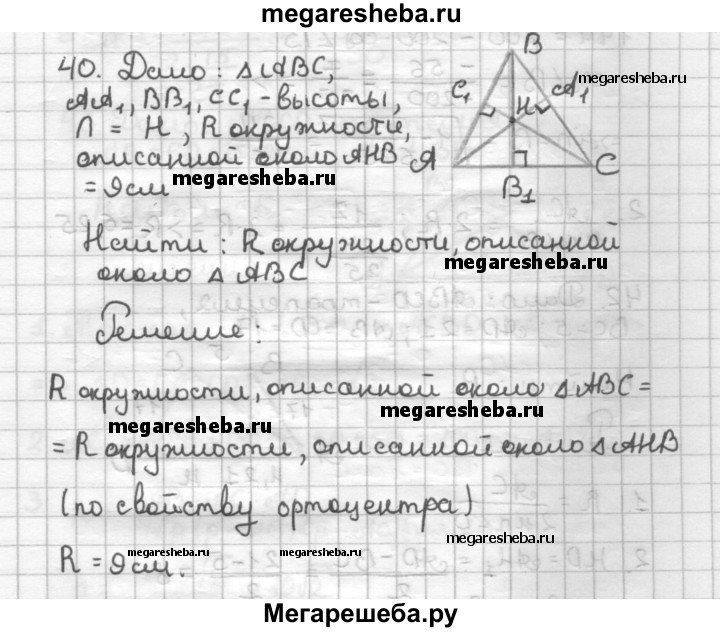 megaresheba.ru
40. Дано: △ABC,
AA₁, BB₁, CC₁ - высоты,
∩ = H, R окружности,
описанной около AHB
= 9 см
megaresheba.ru
B
C₁
H
A₁
megaresheba.ru
A
C
B₁
Найти: R окружности, описанной
megaresheba.ru
около △ ABC
Решение:
R окружности, описанной около △ABC =
megaresheba.ru
megaresheba.ru
= R окружности, описанной около △AHB
(по свойству ортоцентра)
megaresheba.ru
R = 9 см.
megaresheba.ru
megaresheba.ru
megaresheba.ru
Мегарешеба.ру